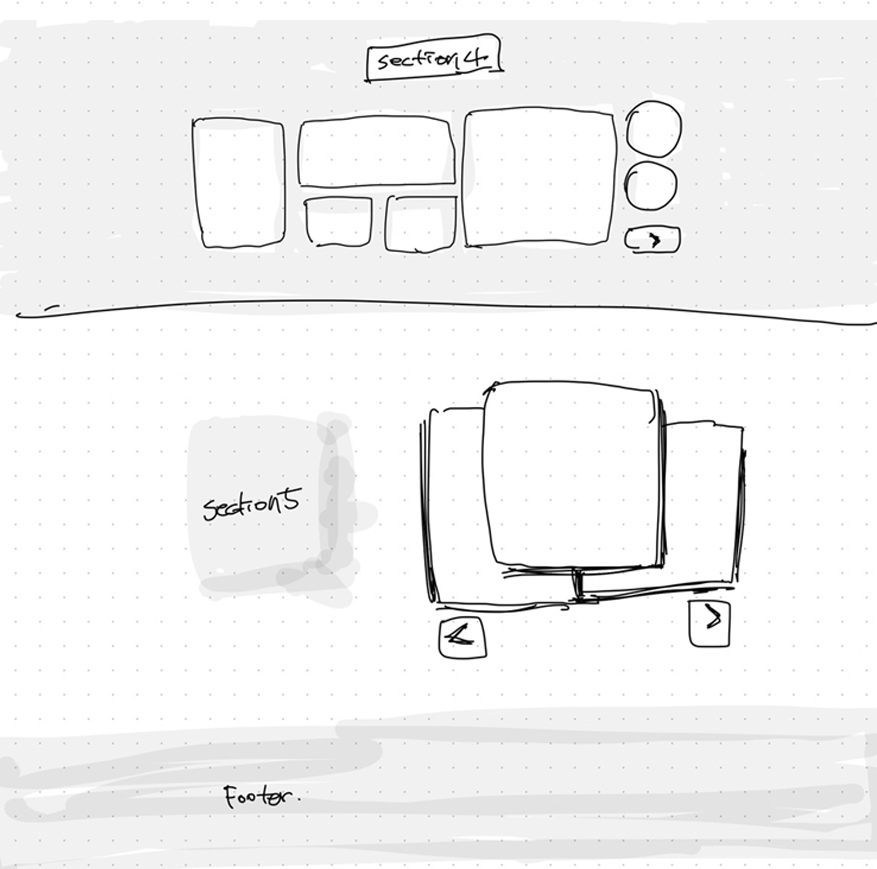 section4
>
section5
<
>
Footer.